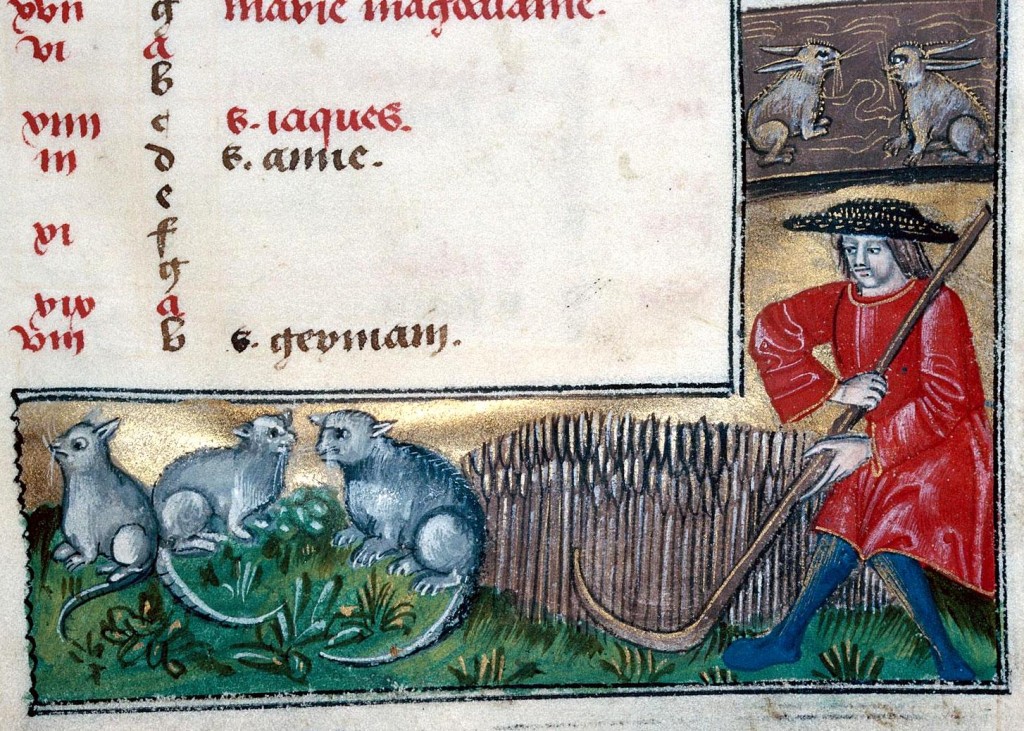 xvii g marie magdalaine.
vi A
b
xiiii c s. iaques.
iii d s. anne.
e
xi f
g
xix A
viii b s. germain.